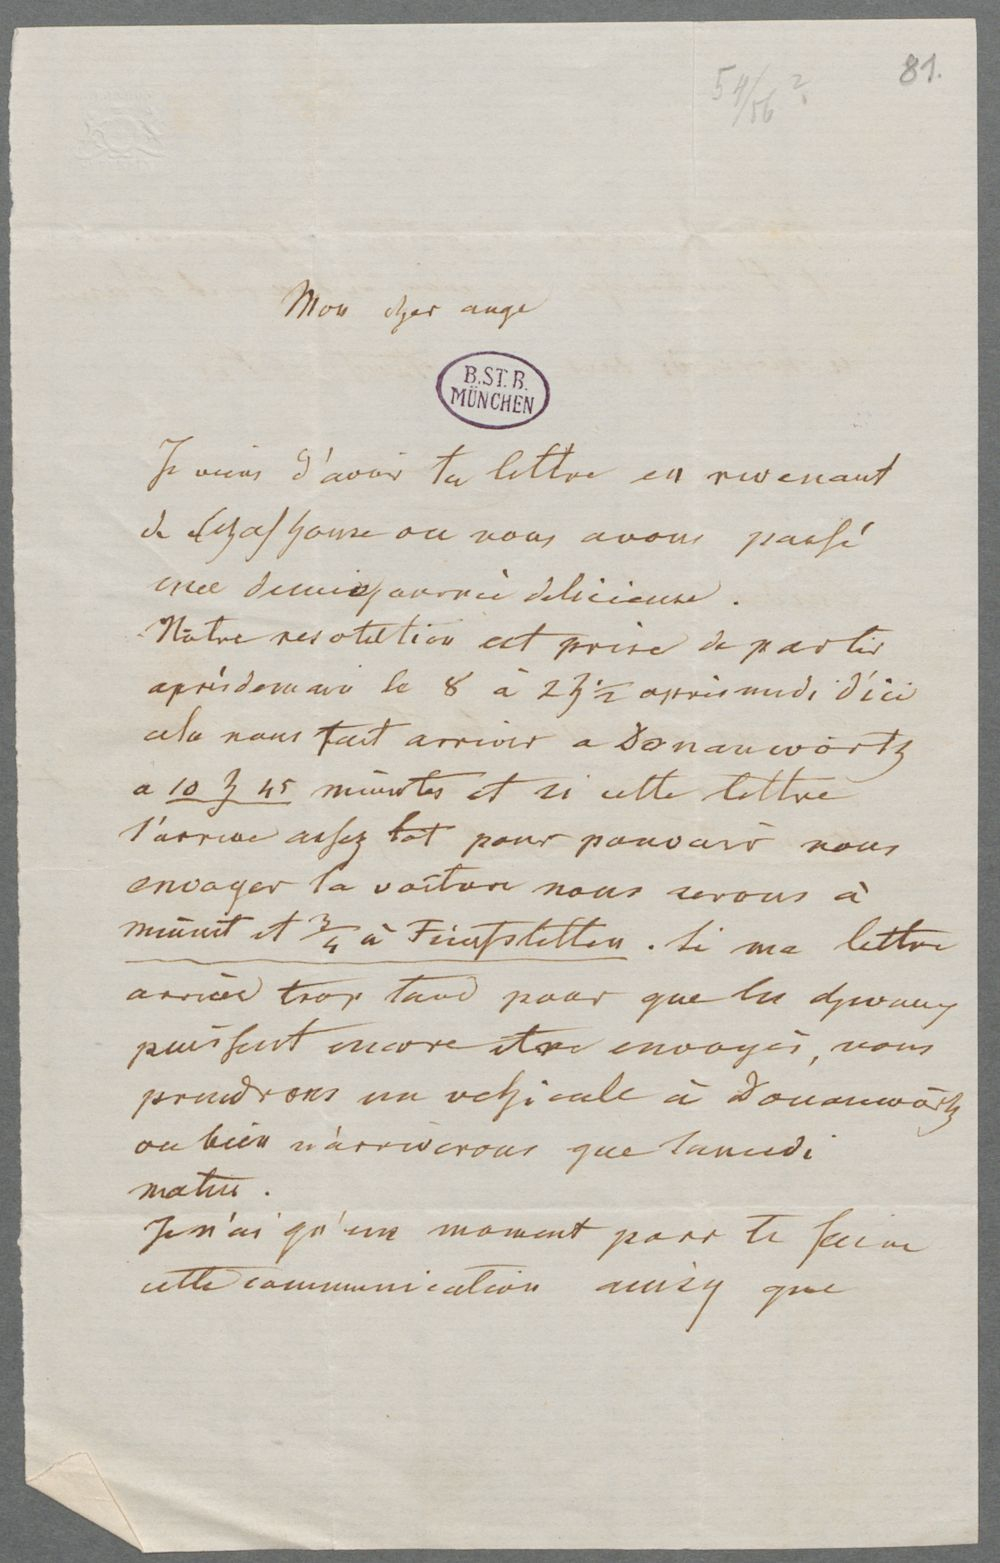 81.
54/56 ?
Mon cher ange
B.ST.B.
MÜNCHEN
Je viens d'avoir ta lettre en revenant
de Schafhouse ou nous avons passé
une demie journée delicieuse.
Nôtre resolution est prise de partir
aprèsdemain le 8 à 2 h ½ après midi d'ici
cela nous fait arriver a Donauwörth
a 10 h 45 minutes et si cette lettre
t'arrive assez tot pour pouvoir nous
envoyer la voiture nous serons à
minuit et ¾ à Fünfstetten. Si ma lettre
arrive trop tard pour que les chevaux
puissent encore etre envoyés, nous
prendrons un vehicule à Donauwörth
ou bien n'arriverons que samedi
matin.
Je n'ai qu'un moment pour te faire
cette communication ainsy que